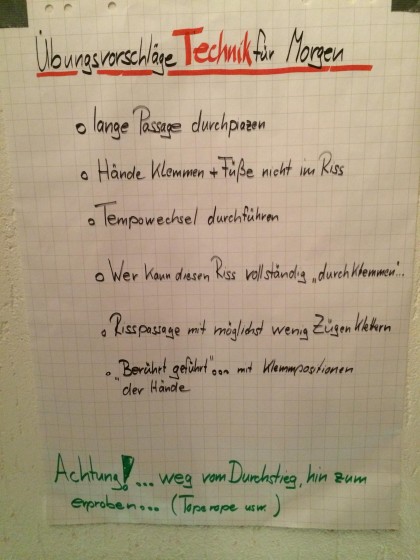 Übungsvorschläge Technik für Morgen
lange Passage durchpiazen
Hände Klemmen + Füße nicht im Riss
Tempowechsel durchführen
Wer kann diesen Riss vollständig „durchklemmen"...
Risspassage mit möglichst wenig Zügen klettern
„Berührt geführt"... mit Klemmpositionen
der Hände
Achtung!... weg vom Durchstieg, hin zum
erproben... (Toperope usw.)